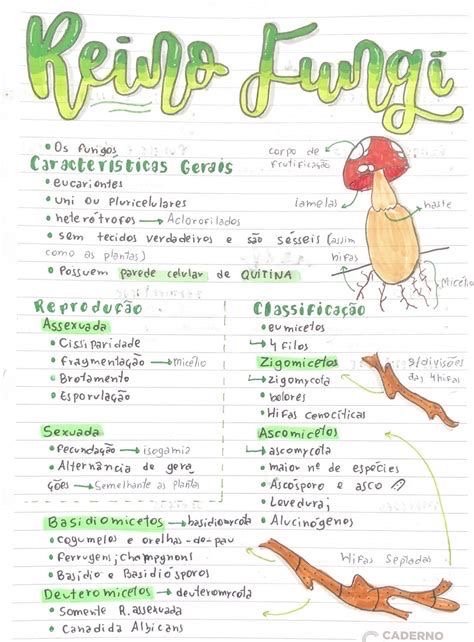 Reino Fungi
• Os fungos
Características Gerais
• eucariontes
• uni ou pluricelulares
• heterótrofos → Aclorofilados
• sem tecidos verdadeiros e são sésseis (assim
como as plantas)
• Possuem parede celular de QUITINA
corpo de
frutificação
lamelas
haste
hifas
Micélio
Reprodução
Assexuada
• Cissiparidade
• fragmentação → micélio
• Brotamento
• Esporulação
Sexuada
• fecundação → isogamia
• Alternância de gera
ções → Semelhante as plantas
Classificação
• eumicetos
↳ 4 filos
Zigomicetos
↳ zigomycota
• bolores
• Hifas cenocíticas
s/divisões
das hifas
Ascomicetos
↳ ascomycota
• maior nº de espécies
• Ascósporo e asco
• Levedura;
• Alucinógenos
Basidiomicetos → basidiomycota
• cogumelos e orelhas-de-pau
• Ferrugem; champgnons
• Basídio e Basidiósporos
Deuteromicetos → deuteromycota
• Somente R. assexuada
• Canadida Albicans
Hifas Septadas
CADERNO